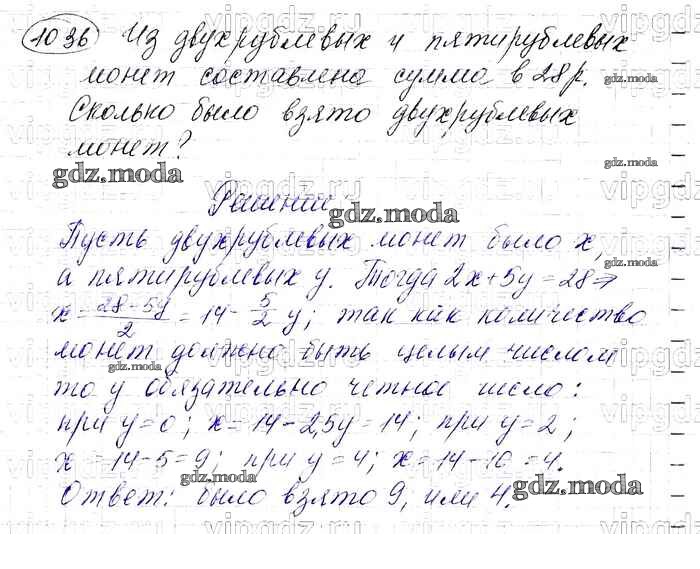 1036 Из двухрублевых и пятирублевых
монет составлена сумма в 28 р.
gdz.moda
Сколько было взято двухрублевых
монет?
gdz.moda
gdz.moda
Решение
gdz.moda
Пусть двухрублевых монет было x,
а пятирублевых y. Тогда 2x+5y=28⇒
gdz.moda
x = (28-5y)/2 = 14 - 5/2 y; так как количество
монет должно быть целым числом
gdz.moda
то y обязательно четное число:
при y=0; x=14-2,5y=14; при y=2;
x=14-5=9; при y=4; x=14-10=4.
gdz.moda
Ответ: было взято 9, или 4.
gdz.moda